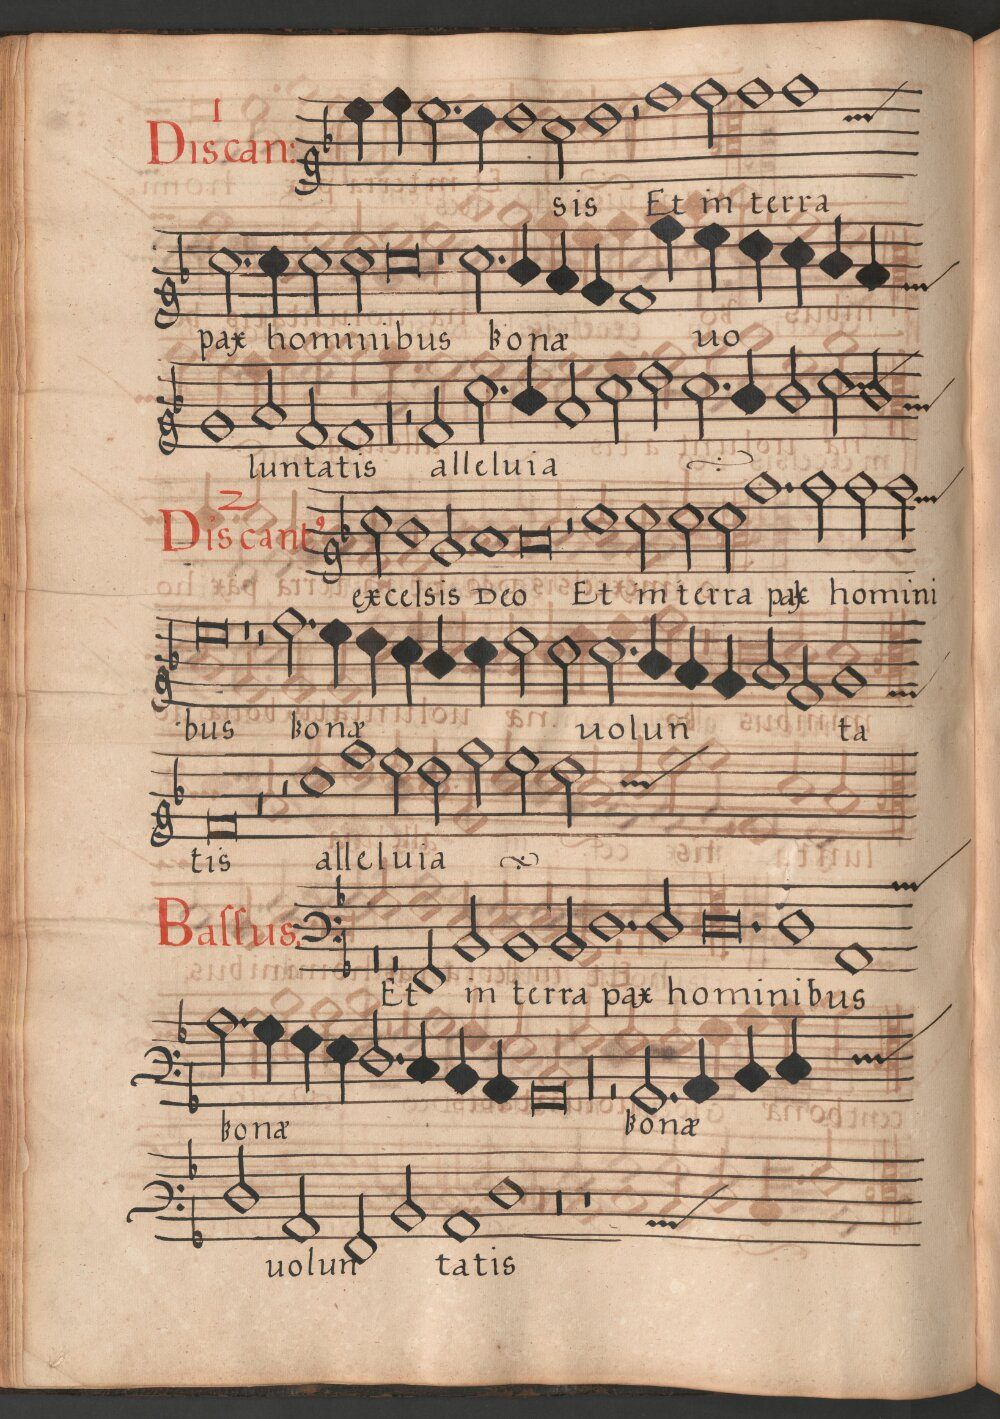 1
Discan:
sis Et in terra
pax hominibus bonæ uo
luntatis alleluia
2
Discant9
excelsis Deo Et in terra pax homini
bus bonæ uolun ta
tis alleluia
Baſſus.
Et in terra pax hominibus
bonæ bonæ
uolun tatis